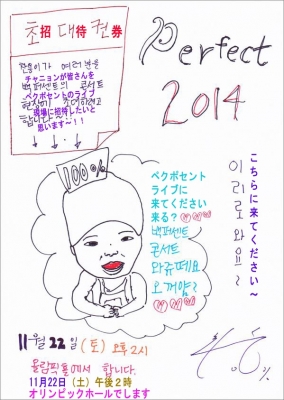 초招 대待 권券
Perfect
2014
찬용이가 여러분을
チャニョンが皆さんを
백퍼센트의 콘서트
ペクポセントのライブ
현장에 초대하려고
現場に招待したいと
합니다~!!
思います~!!
100%
ペクポセント
ライブに
来てください
来る?♡♡♡
백퍼센트
콘서트
와쥬떼요
오꺼얌?
♡♡♡
こちらに来てください~
이리로 와유~
11월 22일 (토) 오후2시
올림픽홀에서 합니다.
11月22日(土)午後2時
オリンピックホールでします